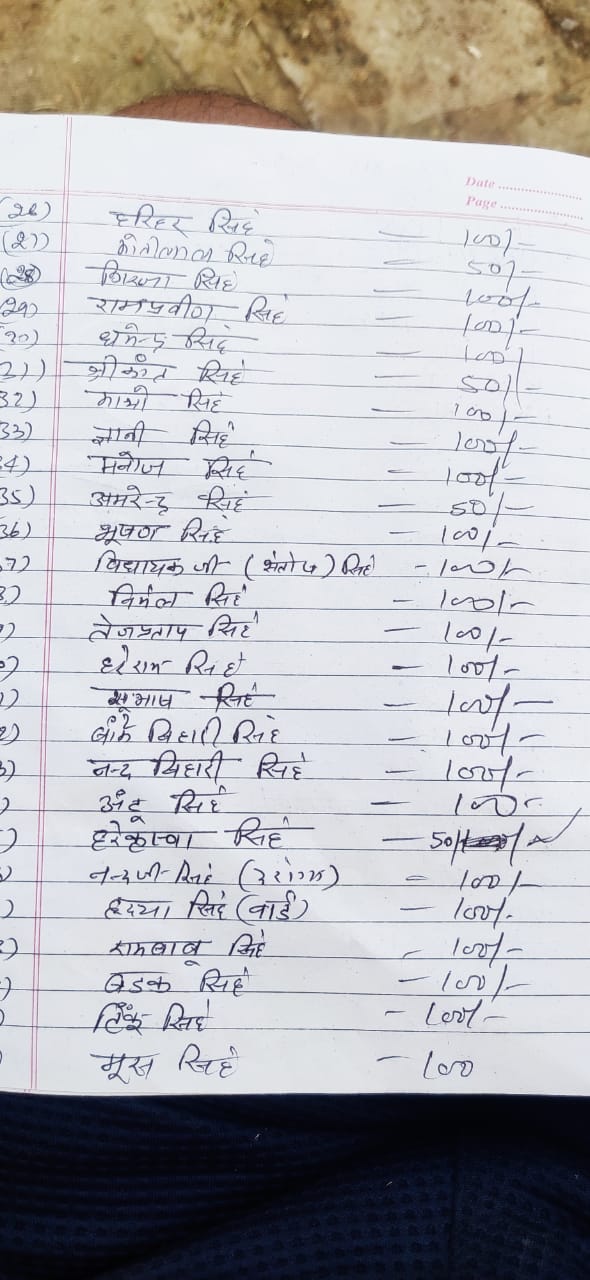 Date ..................
Page ..................
(26) हरिहर सिंह — 100/-
(27) मोतीलाल सिंह — 50/-
(28) गिरजा सिंह — 100/-
29) रामप्रवीण सिंह — 100/-
30) धर्मेन्द्र सिंह — 100/
31) श्रीकांत सिंह — 50/-
32) माश्री सिंह — 100/-
33) ज्ञानी सिंह — 100/-
34) मनोज सिंह — 100/-
35) अमरेन्द्र सिंह — 50/-
36) भूषण सिंह — 100/-
7) विधायक जी (संतोष) सिंह - 100/-
निर्मल सिंह — 100/-
तेजप्रताप सिंह — 100/-
हरेराम सिंह — 100/-
सुभाष सिंह — 100/-
बांके बिहारी सिंह — 100/-
नन्द बिहारी सिंह — 100/-
अंटू सिंह — 100/-
सिंह — 50/-
नन्दजी सिंह — 100/-
हृदया सिंह (वार्ड) — 100/-
रामबाबू सिंह — 100/-
बडक सिंह — 100/-
टिंकू सिंह - 100/-
मूस सिंह — 100